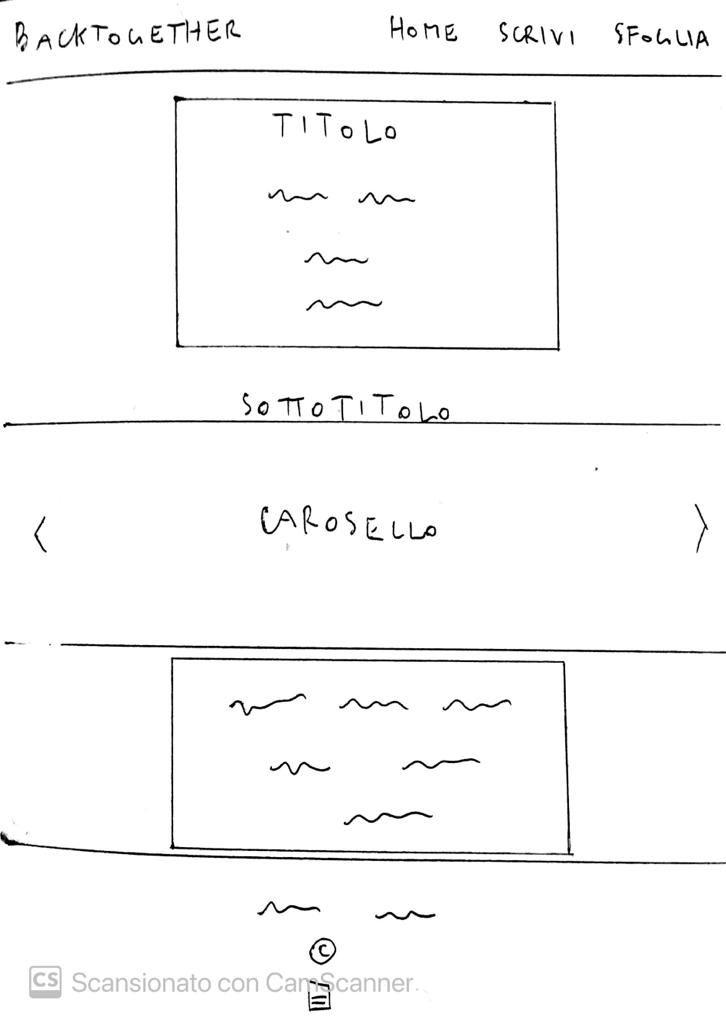 BACKTOGETHER HOME SCRIVI SFOGLIA
TITOLO
SOTTOTITOLO
< CAROSELLO >
©
CS Scansionato con CamScanner